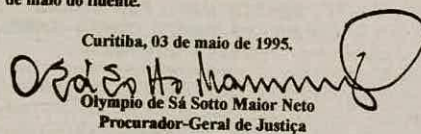 de maio do fluente.
Curitiba, 03 de maio de 1995.
Olympio de Sá Sotto Maior Neto
Procurador-Geral de Justiça